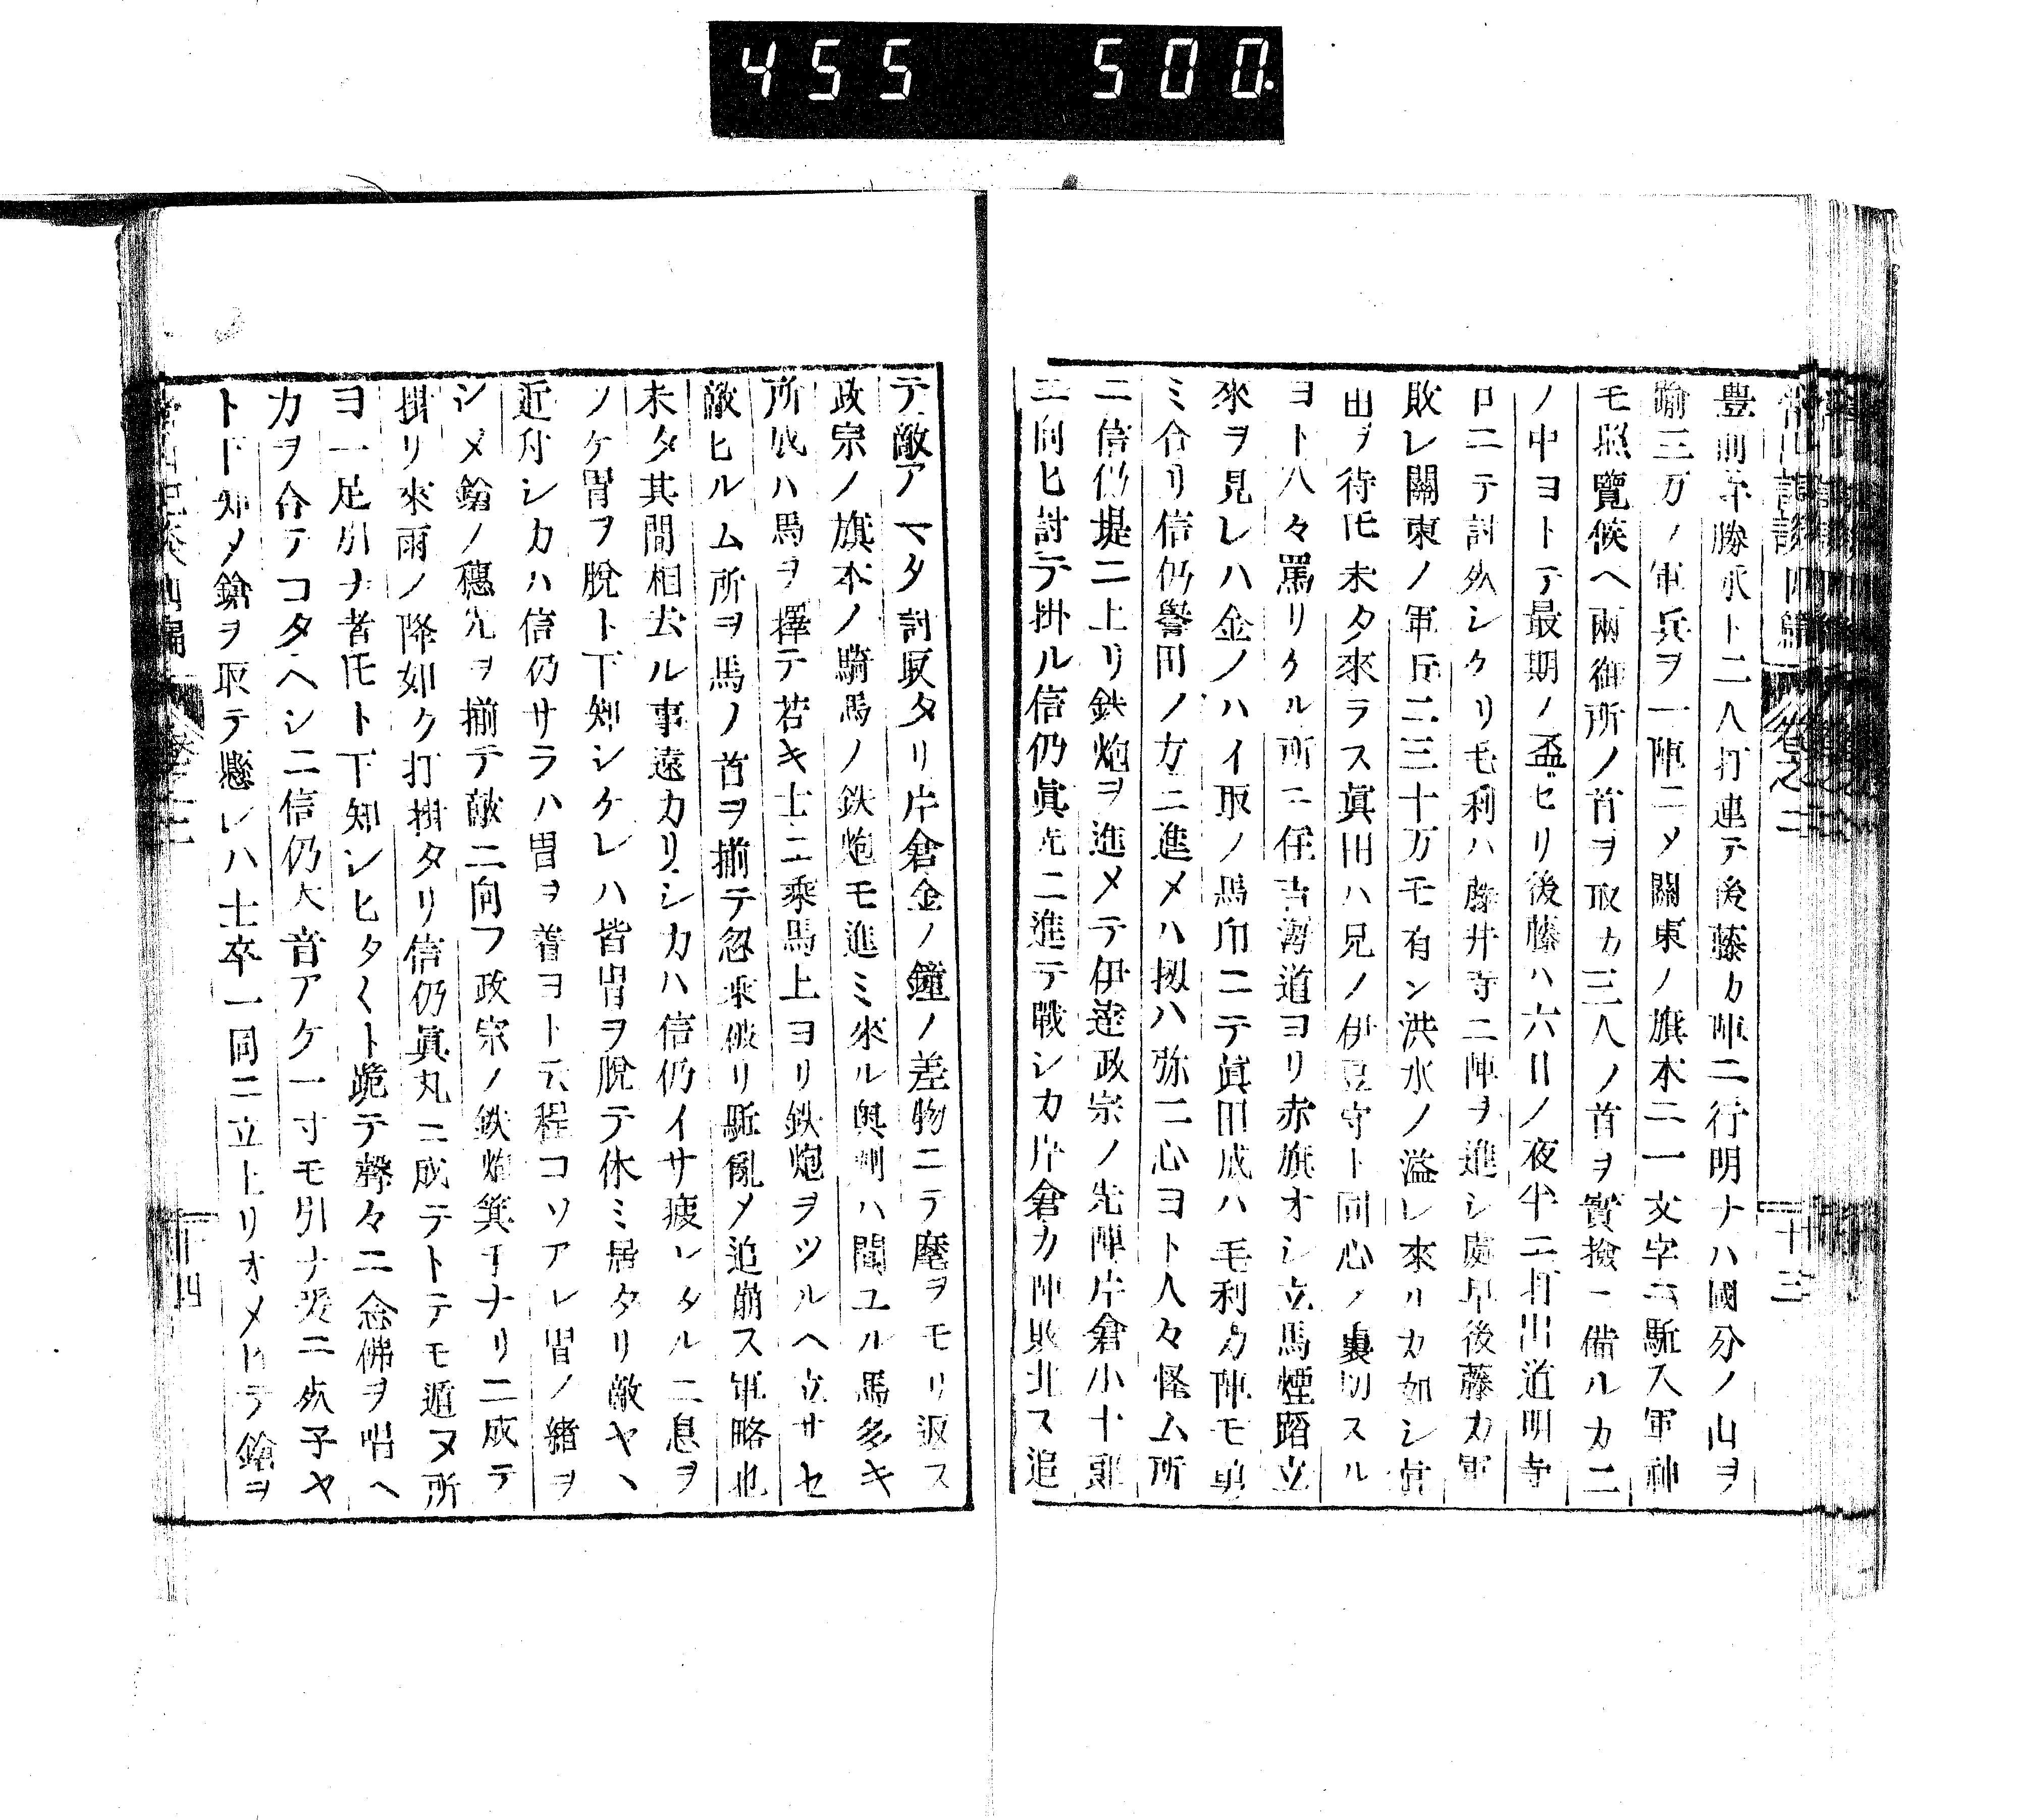 455 500.
常山紀談四編 卷之二 十三
豊前守勝永ト二人打連テ後藤カ陣ニ行明ナハ國分ノ山ヲ
踰三万ノ軍兵ヲ一陣ニメ關東ノ旗本ニ一文字ニ駈入軍神
モ照覽候ヘ兩御所ノ首ヲ取カ三人ノ首ヲ實撿ニ備ルカ二
ノ中ヨトテ最期ノ盃ヲセリ後藤ハ六日ノ夜半ニ打出道明寺
口ニテ討死シケリ毛利ハ藤井寺ニ陣ヲ進シ處早後藤カ軍
敗レ關東ノ軍兵二三十万モ有ン洪水ノ溢レ來リカ如シ眞
田ヲ待圧未タ來ラス眞田ハ兄ノ伊豆守ト同心ノ裏切スル
ヨト人々罵リケル所ニ住吉海道ヨリ赤旗オシ立馬煙蹈立
來ヲ見レハ金ノハイ取ノ馬印ニテ眞田成ハ毛利カ陣モ勇
ミ合リ信仍譽田ノ方ニ進メハ扨ハ弥二心ヨト人々怪ム所
ニ信仍堤ニ上リ鉄炮ヲ進メテ伊達政宗ノ先陣片倉小十郎
ニ向ヒ討テ掛ル信仍眞先ニ進テ戰シカ片倉カ陣敗北ス追
テ敵アマタ討取タリ片倉金ノ鐘ノ差物ニテ麾ヲモリ返ス
政宗ノ旗本ノ騎馬ノ鉄炮モ進ミ來ル奥州ハ聞ユル馬多キ
所成ハ馬ヲ擇テ若キ士ニ乘馬上ヨリ鉄炮ヲツルヘ立サセ
敵ヒルム所ヲ馬ノ首ヲ揃テ忽乘破リ駈亂メ追崩ス軍略也
未タ其間相去ル事遠カリシカハ信仍イサ疲レタルニ息ヲ
ノケ冑ヲ脫ト下知シケレハ皆冑ヲ脫テ休ミ居タリ敵ヤヽ
近付シカハ信仍サラハ冑ヲ着ヨトテ程コソアレ冑ノ緒ヲ
シメ鎗ノ穗先ヲ揃テ敵ニ向フ政宗ノ鉄炮箕手ナリニ成テ
掛リ來雨ノ降如ク打掛タリ信仍眞丸ニ成テトテモ遁ヌ所
ヨ一足引ナ者圧ト下知シヒタ〱ト跪テ聲々ニ念佛ヲ唱ヘ
カヲ合テコタヘシニ信仍大音アケ一寸モ引ナ爰ニ死子ヤ
ト下知メ鎗ヲ取テ懸レハ士卒一同ニ立上リオメヒテ鎗ヲ